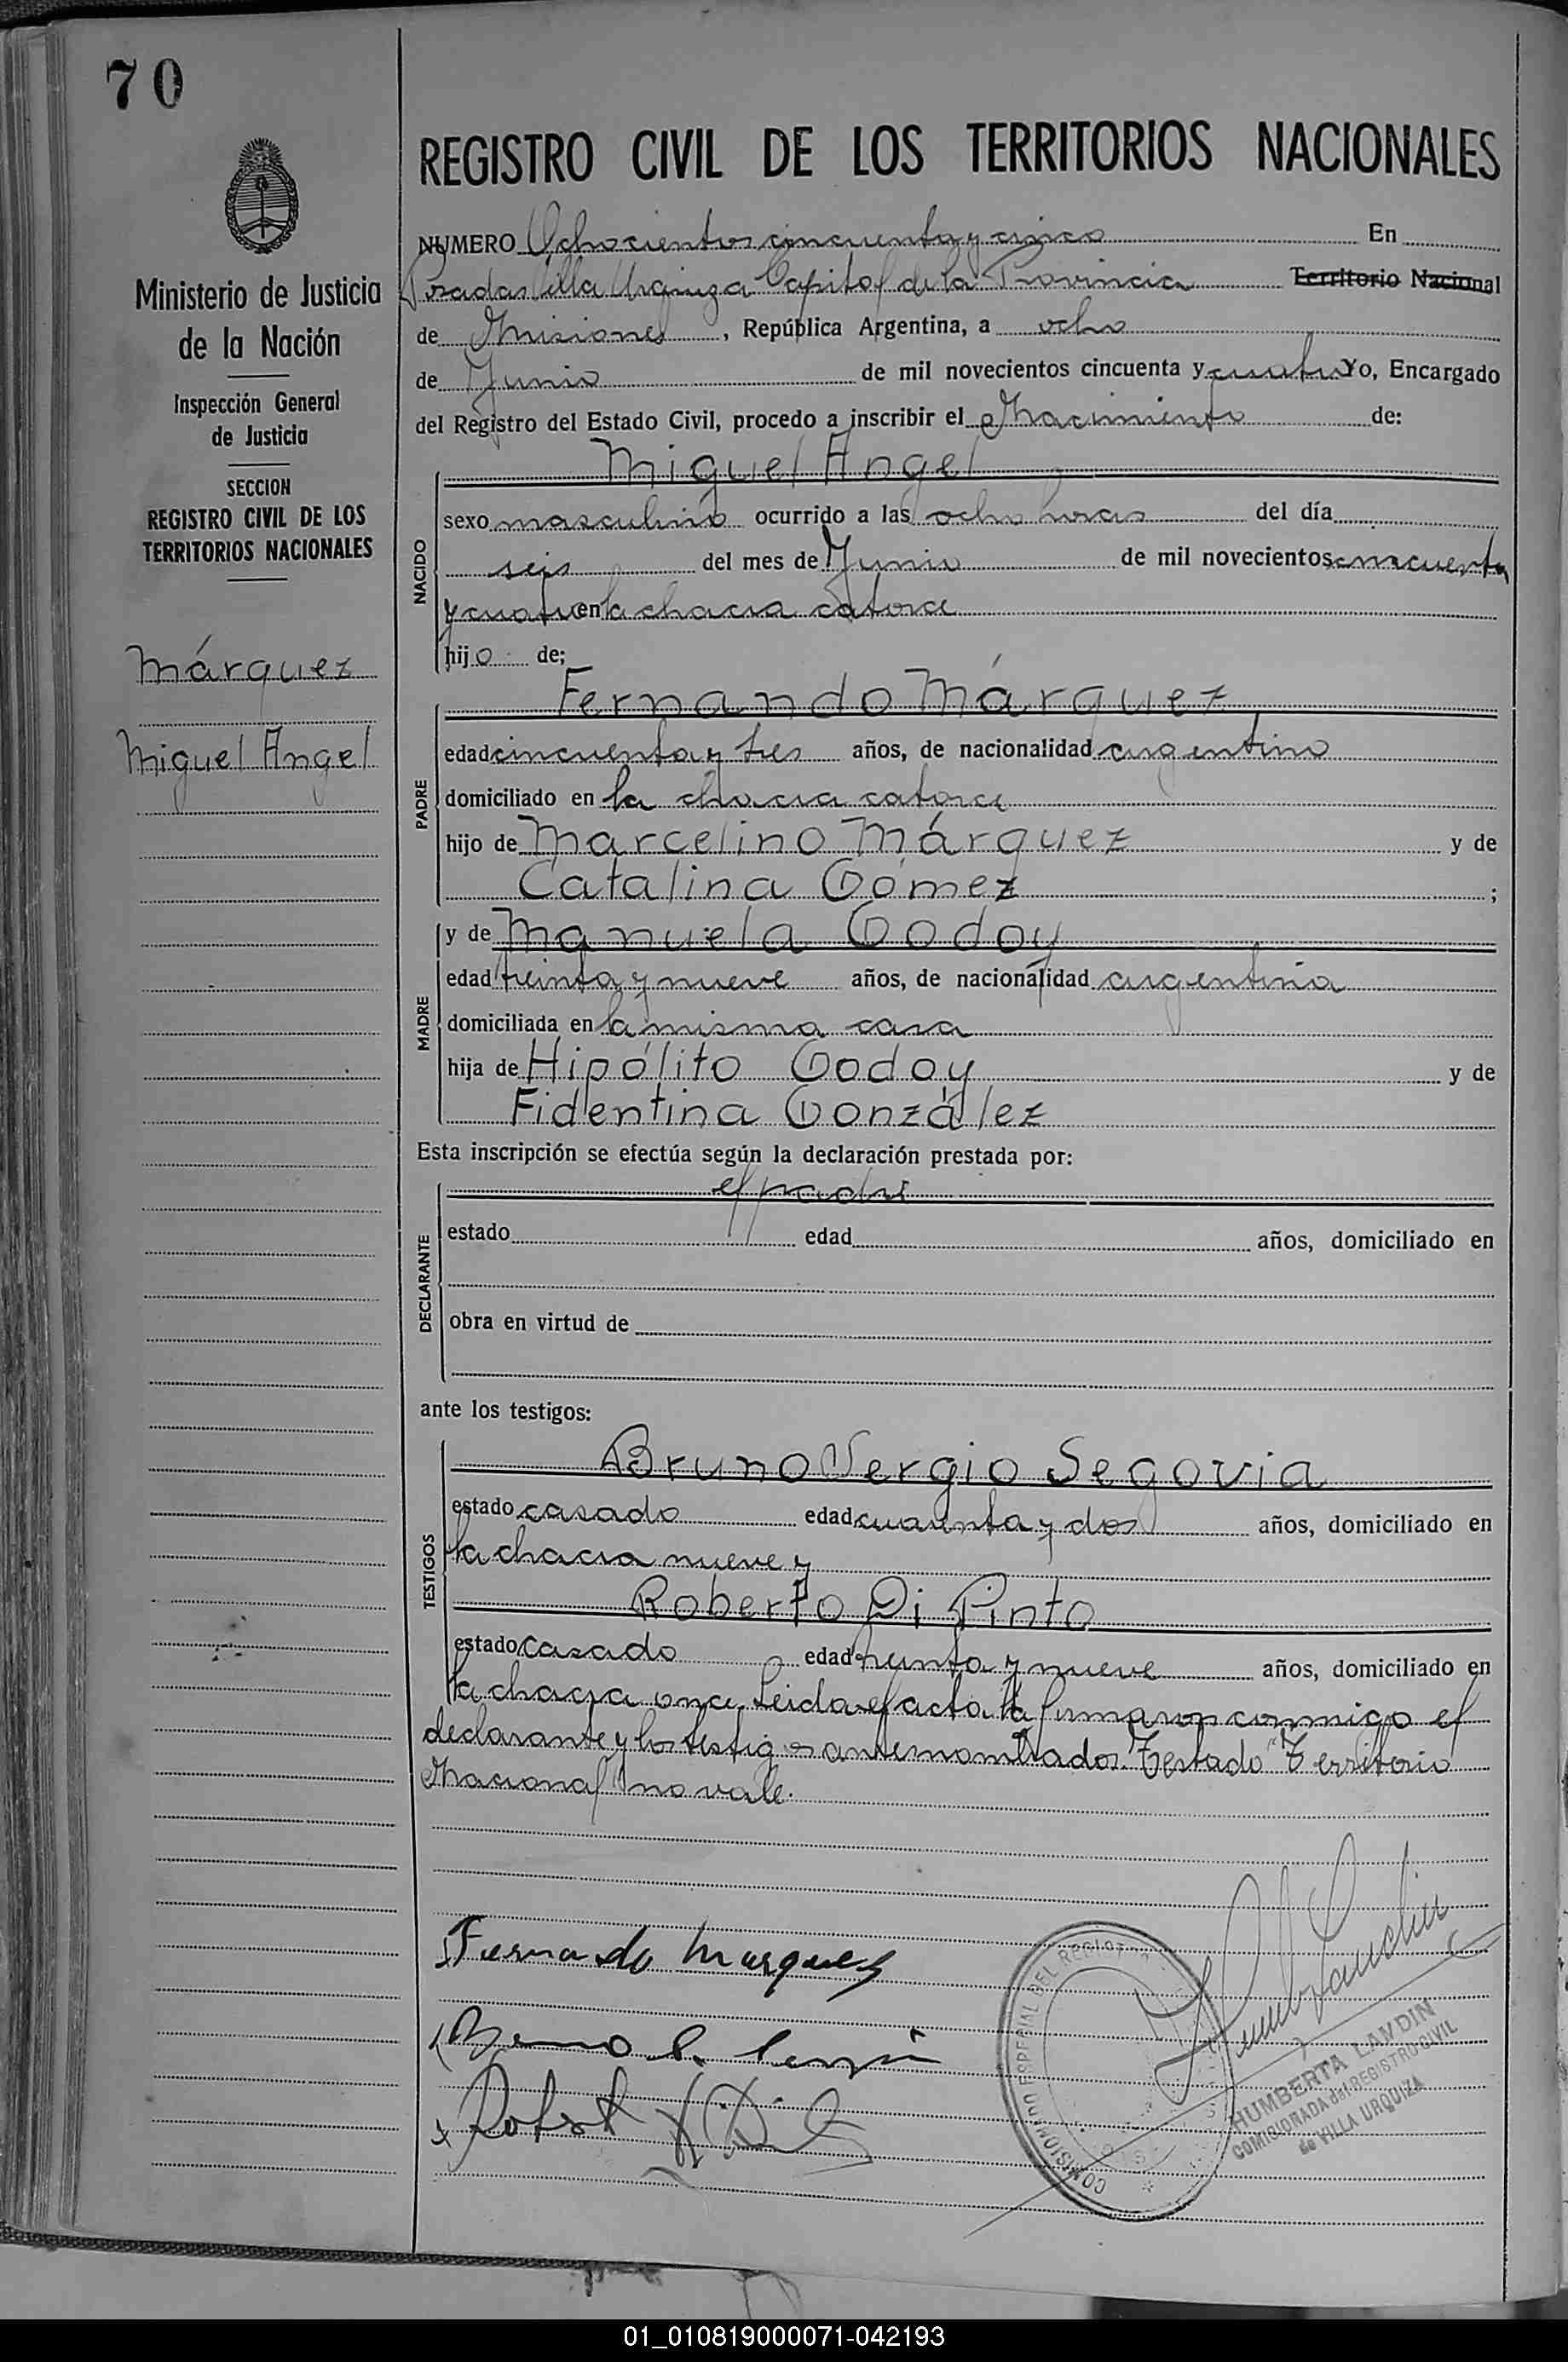 70
Ministerio de Justicia
de la Nación
Inspección General
de Justicia
SECCION
REGISTRO CIVIL DE LOS
TERRITORIOS NACIONALES
Márquez
Miguel Angel
REGISTRO CIVIL DE LOS TERRITORIOS NACIONALES
NUMERO Ochocientos cincuenta y cinco En
Posadas Villa Urquiza Capital de la Provincia Territorio Nacional
de Misiones, República Argentina, a ocho
de Junio de mil novecientos cincuenta y cuatro Yo, Encargado
del Registro del Estado Civil, procedo a inscribir el Nacimiento de:
Miguel Angel
NACIDO
sexo masculino ocurrido a las ocho horas del día
seis del mes de Junio de mil novecientos cincuenta
y cuatro en la chacra catorce
hijo de;
Fernando Márquez
PADRE
edad cincuenta y tres años, de nacionalidad argentino
domiciliado en la chacra catorce
hijo de Marcelino Márquez y de
Catalina Gómez ;
y de Manuela Godoy
MADRE
edad treinta y nueve años, de nacionalidad argentina
domiciliada en la misma casa
hija de Hipólito Godoy y de
Fidentina González
Esta inscripción se efectúa según la declaración prestada por:
el padre
DECLARANTE
estado edad años, domiciliado en
obra en virtud de
ante los testigos:
Bruno Sergio Segovia
TESTIGOS
estado casado edad cuarenta y dos años, domiciliado en
la chacra nueve y
Roberto Di Pinto
estado casado edad treinta y nueve años, domiciliado en
la chacra once. Leida el acta la firmaron conmigo el
declarante y los testigos antenombrados. Testado "Territorio
Nacional" no vale.
Fernado Marques
HUMBERTA LANDIN
COMISIONADA del REGISTRO CIVIL
de VILLA URQUIZA
COMISIONADO ESPECIAL DEL REGISTRO
01_010819000071-042193